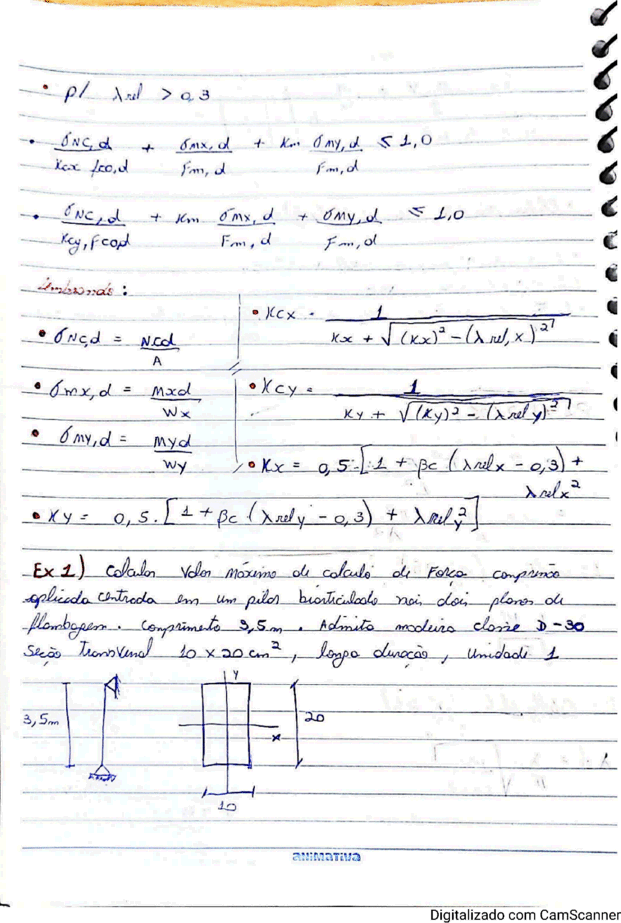 • p/ λrel > 0,3
• σNc,d / Kcx fco,d + σmx,d / Fm,d + Km σmy,d / Fm,d ≤ 1,0
• σNc,d / Kcy, Fco,d + Km σmx,d / Fm,d + σmy,d / Fm,d ≤ 1,0
Lembrando :
• σNc,d = Ncd / A
• σmx,d = Mxd / Wx
• σmy,d = Myd / Wy
• Kcx = 1 / Kx + √(Kx)² - (λrel,x)²
• Kcy = 1 / Ky + √(Ky)² - (λrel y)²
• Kx = 0,5.[1 + βc (λrelx - 0,3) +
λrelx²
• Ky = 0,5.[1 + βc (λrely - 0,3) + λrely²]
Ex 1) Calcular Valor máximo de calculo de Força compressão
aplicada centrada em um pilar biarticulado nos dois planos de
flambagem. comprimento 3,5m. Admita madeira classe D-30
Seção Transversal 10 x 20 cm², longa duração, Umidade 1
3,5m
y
x
20
10
animativa
Digitalizado com CamScanner